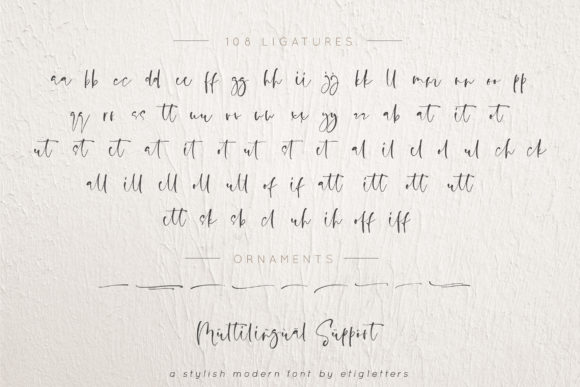 108 LIGATURES
aa bb cc dd ee ff gg hh ii jj kk ll mm nn oo pp
qq rr ss tt uu vv ww xx yy zz ab at it ot
ut st et at it ot ut st et al il el ol ul ch ck
all ill ell oll ull of if att itt ott utt
ett sk sb cl uh ih off iff
ORNAMENTS
Multilingual Support
a stylish modern font by etigletters